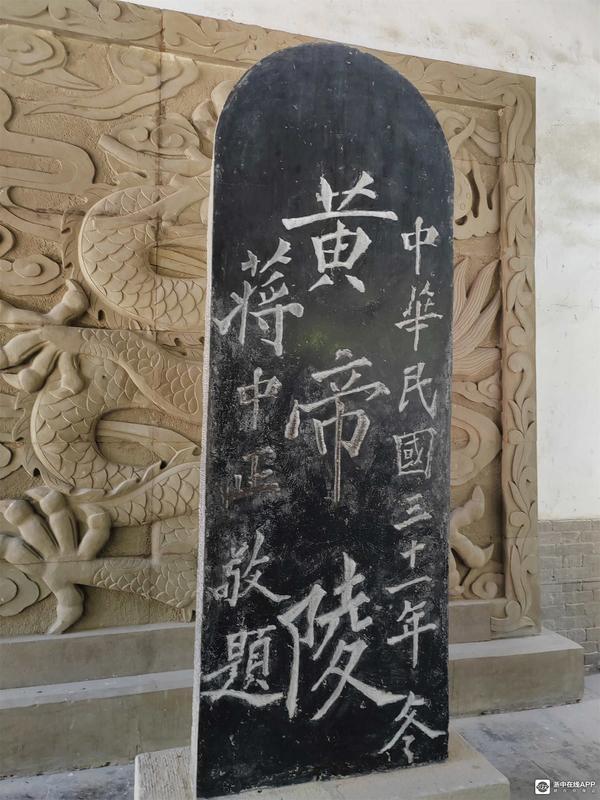 中華民國三十一年冬
黄帝陵
蔣中正敬題
浙中在线APP